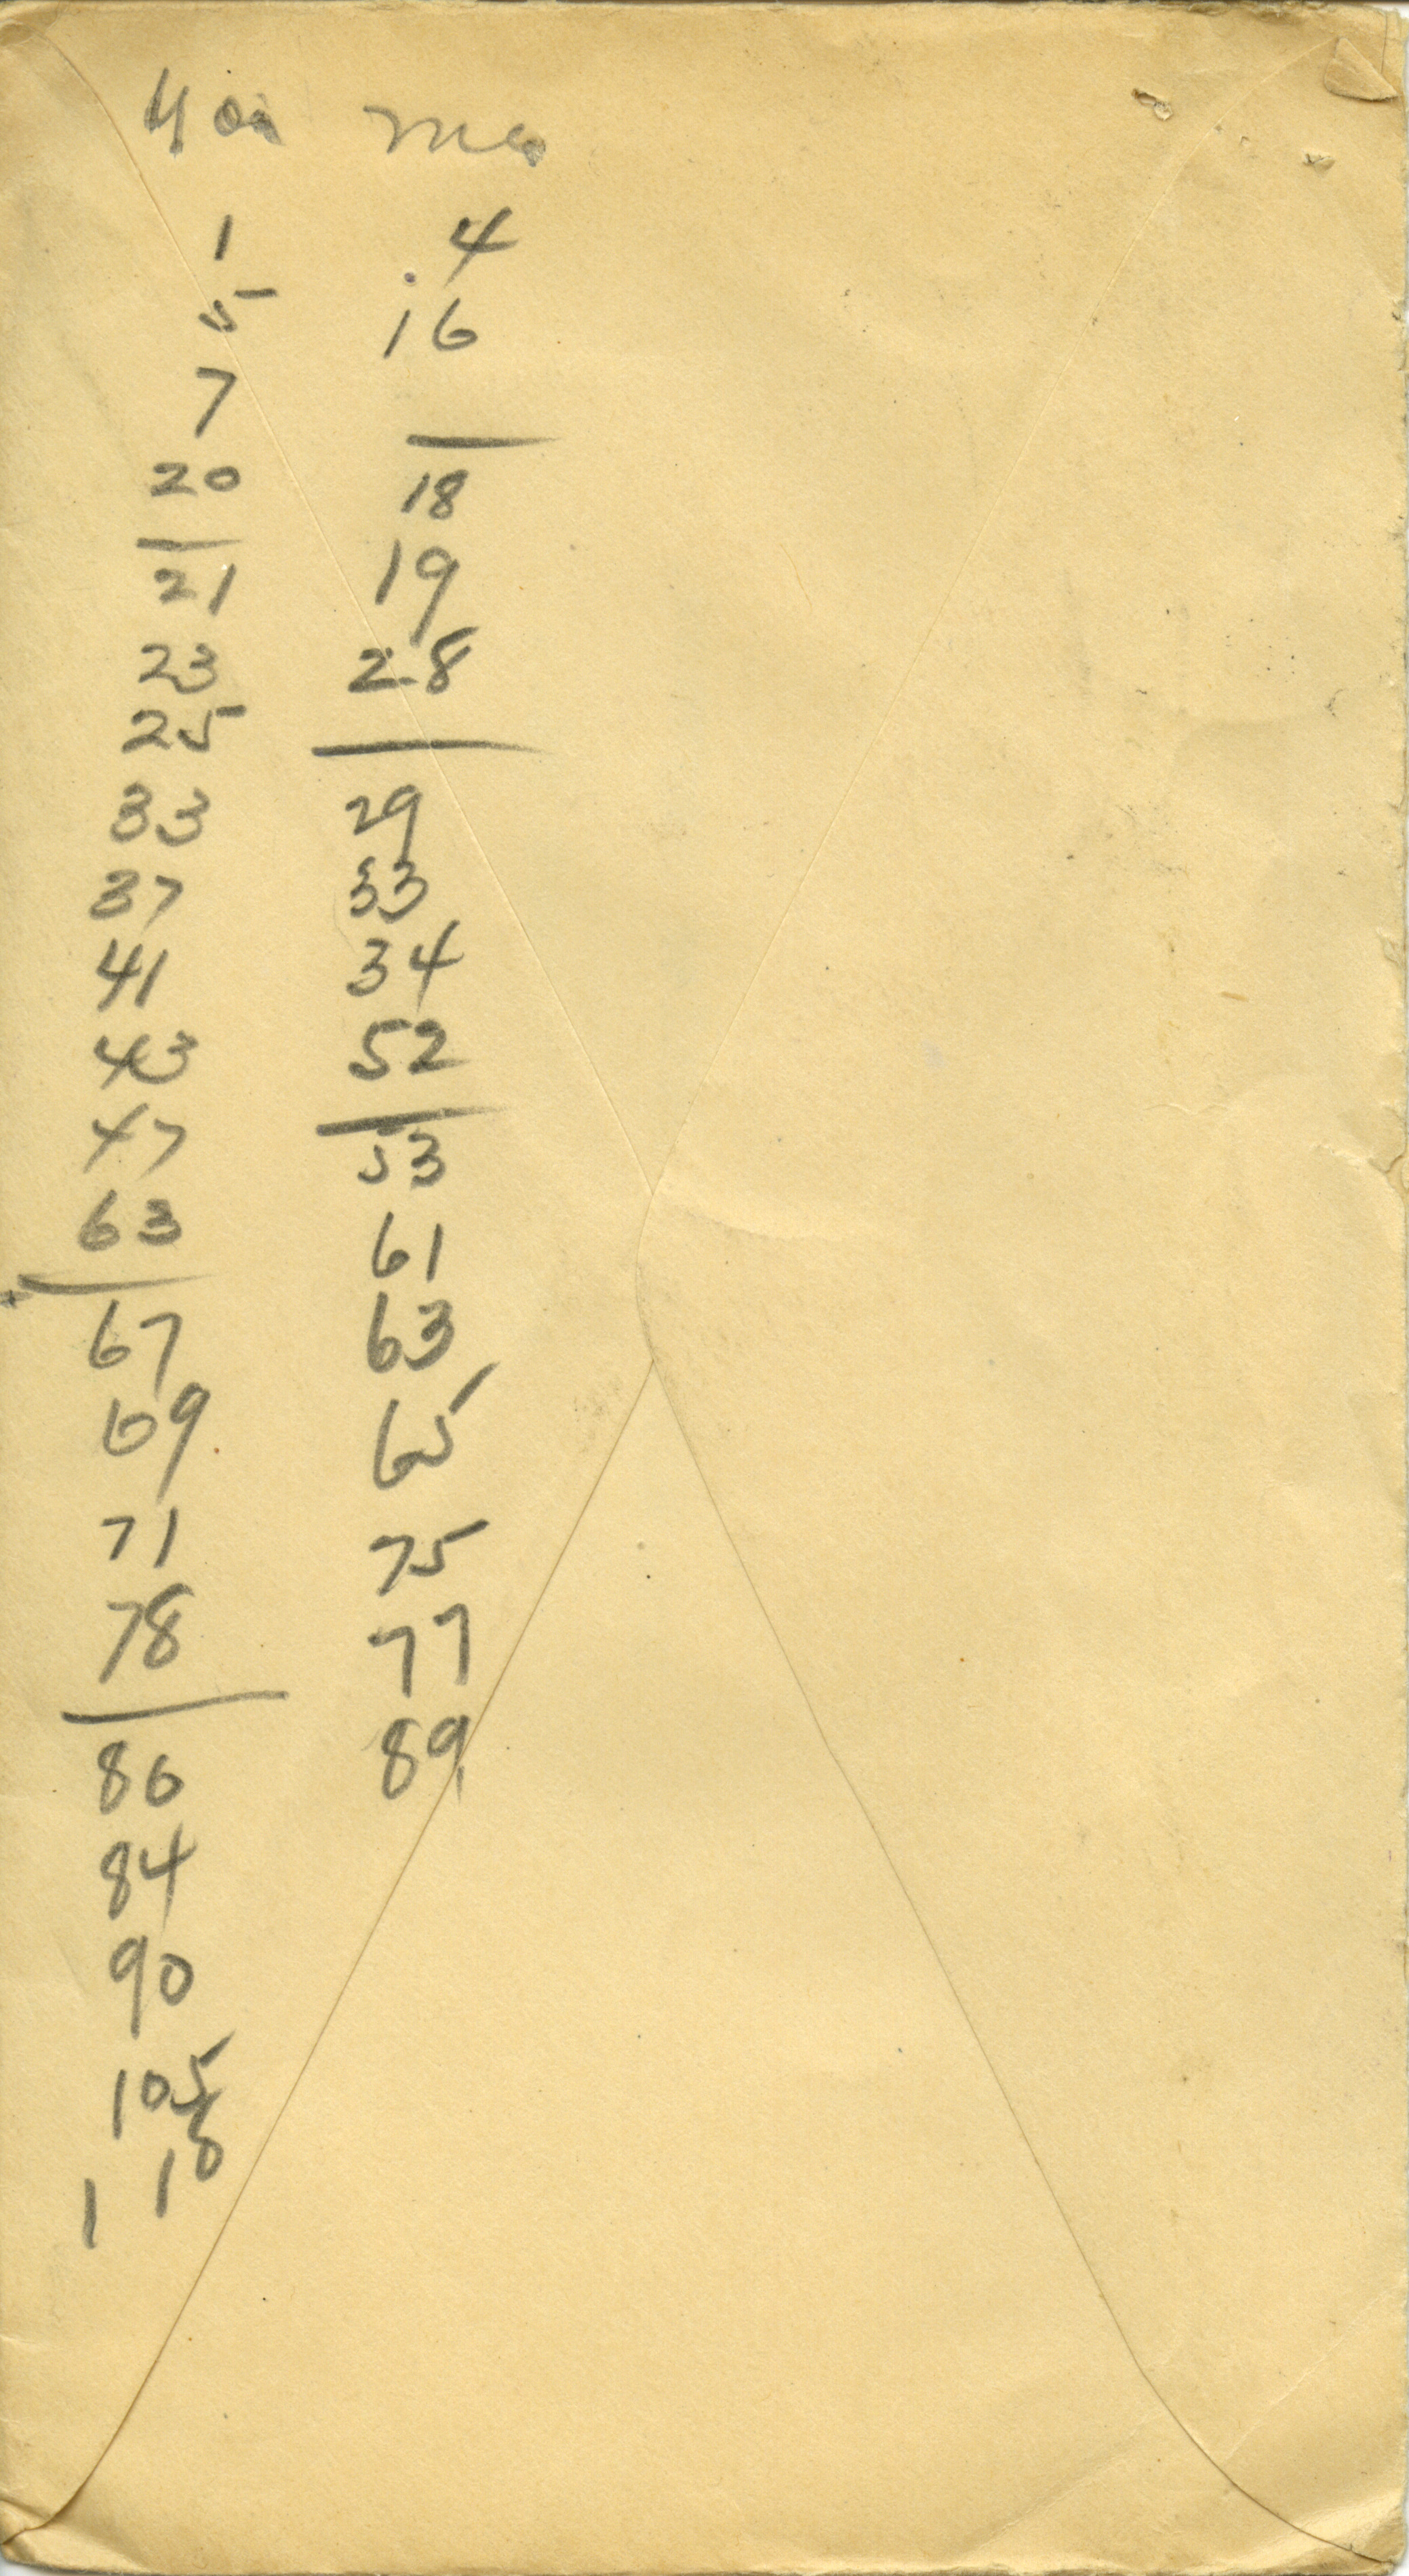 You me
1 4
5 16
7
20 18
21 19
23 28
25
33 29
37 33
41 34
43 52
47 53
63 61
67 63
69 65
71 75
78 77
80 89
84
90
105
118